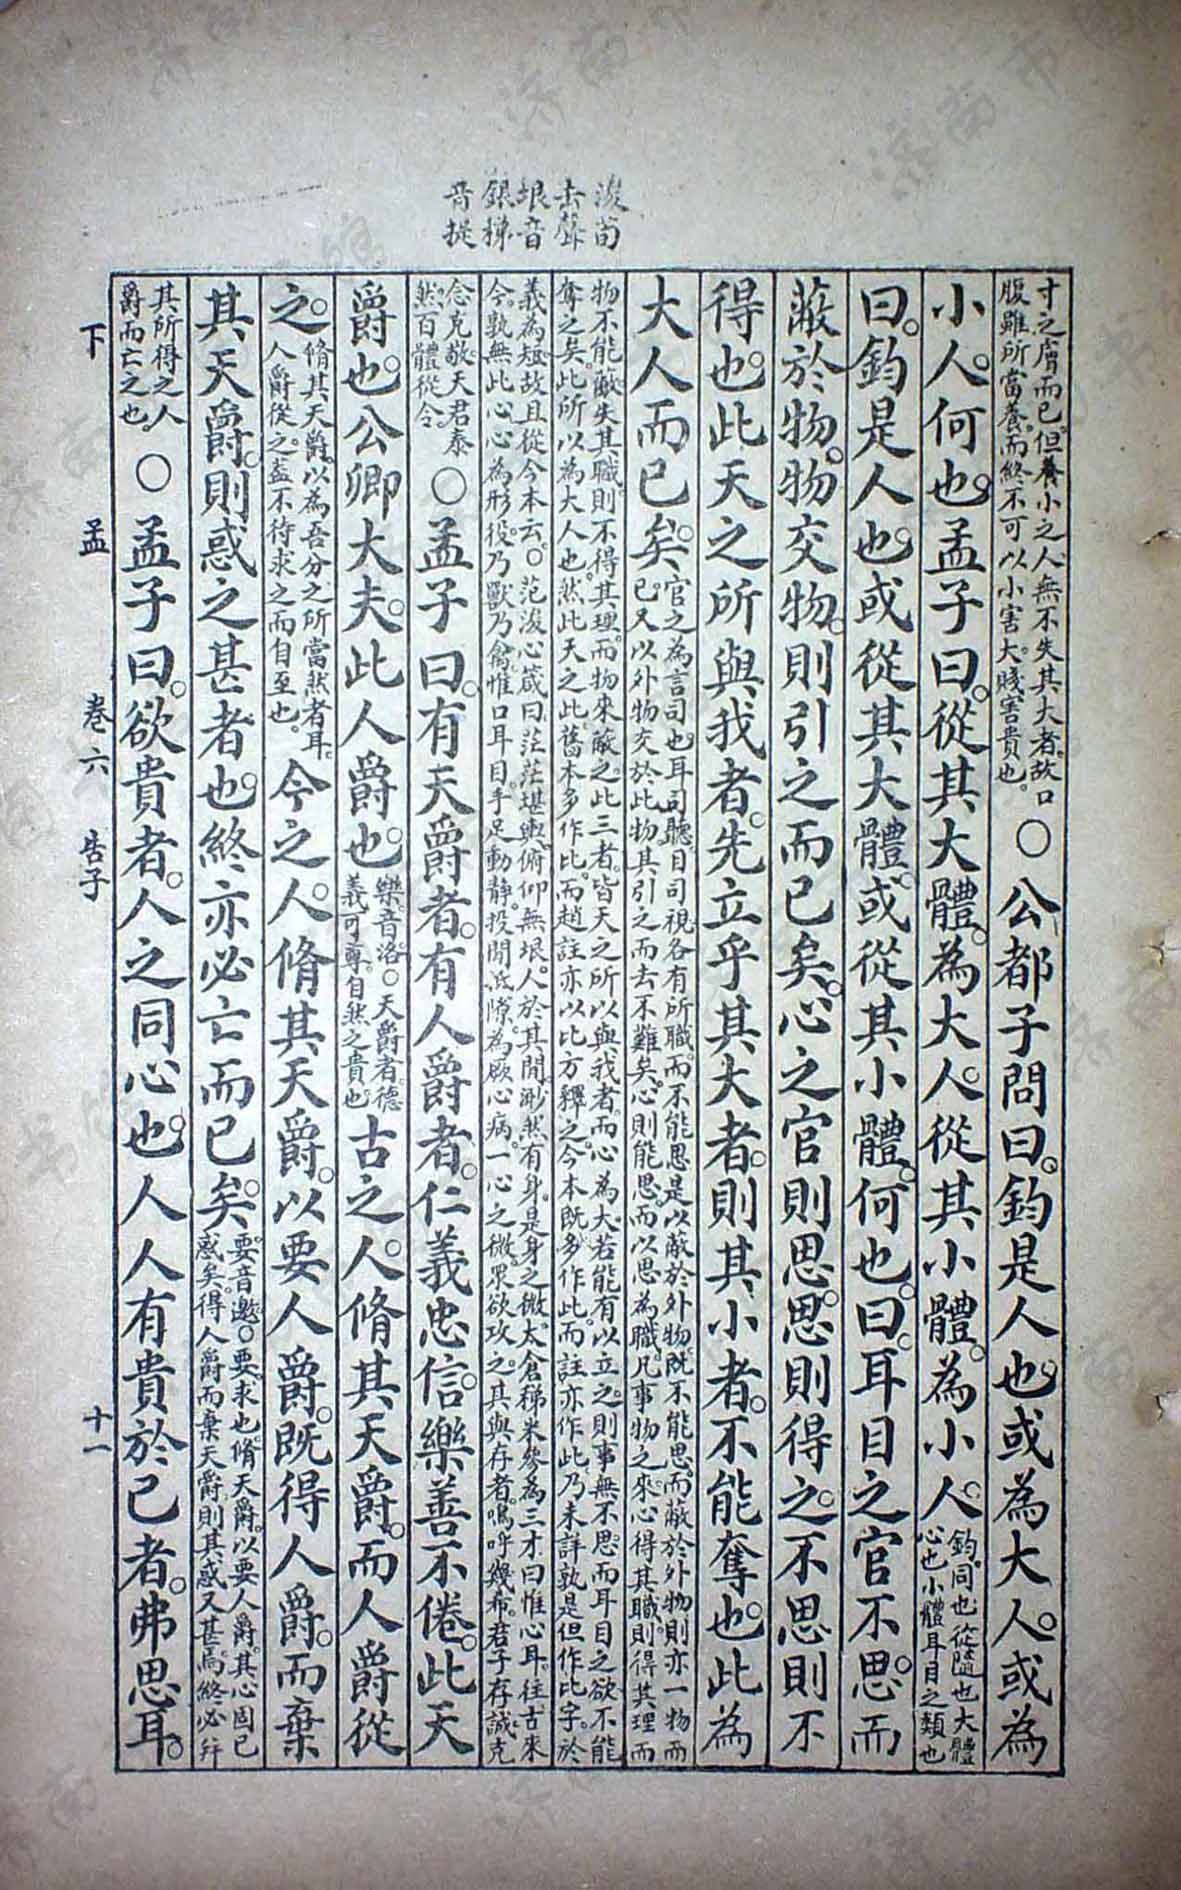 浚荀
去聲
垠音
銀稊
音提
寸之膚而已。但養小之人。無不失其大者。故口
腹雖所當養。而終不可以小害大。賤害貴也。
○公都子問曰。鈞是人也。或為大人。或為
小人。何也。孟子曰。從其大體。為大人。從其小體。為小人。
鈞。同也。從。隨也。大體
心也。小體。耳目之類也
曰。鈞是人也。或從其大體。或從其小體。何也。曰。耳目之官不思。而
蔽於物。物交物。則引之而已矣。心之官則思。思則得之。不思則不
得也。此天之所與我者。先立乎其大者。則其小者。不能奪也。此為
大人而已矣。
官之為言司也。耳司聽。目司視。各有所職。而不能思。是以蔽於外物。既不能思。而蔽於外物。則亦一物而
已。又以外物交於此物。其引之而去不難矣。心則能思。而以思為職。凡事物之來。心得其職。則得其理而
物不能蔽。失其職。則不得其理。而物來蔽之。此三者。皆天之所以與我者。而心為大。若能有以立之。則事無不思。而耳目之欲不能
奪之矣。此所以為大人也。然此天之此。舊本多作比。而趙註亦以比方釋之。今本既多作此。而註亦作此。乃未詳孰是。但作比字。於
義為短。故且從今本云。○范浚心箴曰。茫茫堪輿。俯仰無垠。人於其間。渺然有身。是身之微。太倉稊米。參為三才。曰惟心耳。往古來
今。孰無此心。心為形役。乃獸乃禽。惟口耳目。手足動靜。投間抵隙。為厥心病。一心之微。眾欲攻之。其與存者。嗚呼幾希。君子存誠。克
念克敬。天君泰
然。百體從令。
○孟子曰。有天爵者。有人爵者。仁義忠信。樂善不倦。此天
爵也。公卿大夫。此人爵也。
樂。音洛。○天爵者。德
義可尊。自然之貴也。
古之人。脩其天爵。而人爵從
之。
脩其天爵。以為吾分之所當然者耳。
人爵從之。蓋不待求之而自至也。
今之人。脩其天爵。以要人爵。既得人爵。而棄
其天爵。則惑之甚者也。終亦必亡而已矣。
要。音邀。○要。求也。脩天爵。以要人爵。其心固已
惑矣。得人爵而棄天爵。則其惑又甚焉。終必并
其所得之人
爵而亡之也。
○孟子曰。欲貴者。人之同心也。人人有貴於己者。弗思耳。
下 孟 卷六 告子 十一